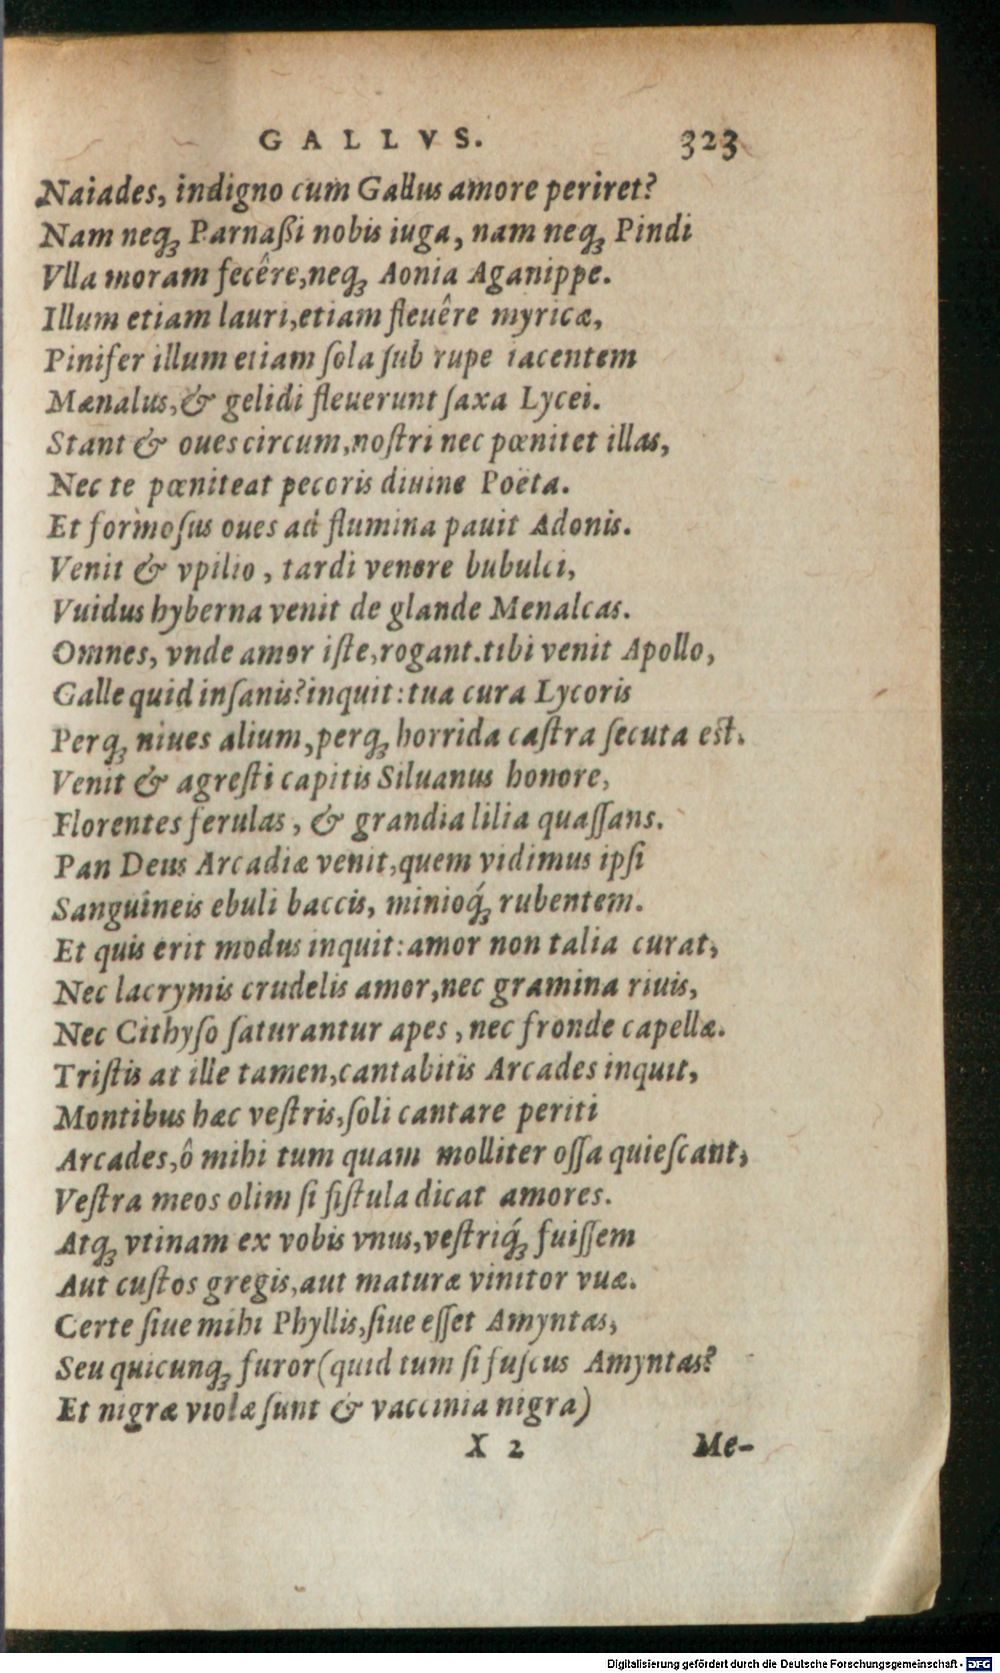 GALLVS. 323
Naiades, indigno cum Gallus amore periret?
Nam neq; Parnaßi nobis iuga, nam neq; Pindi
Vlla moram fecêre,neq; Aonia Aganippe.
Illum etiam lauri,etiam fleuêre myricæ,
Pinifer illum etiam ſola ſub rupe iacentem
Mænalus,& gelidi fleuerunt ſaxa Lycei.
Stant & oues circum,noſtri nec pœnitet illas,
Nec te pœniteat pecoris diuine Poëta.
Et formoſus oues ad flumina pauit Adonis.
Venit & vpilio, tardi venere bubulci,
Vuidus hyberna venit de glande Menalcas.
Omnes, vnde amor iſte,rogant.tibi venit Apollo,
Galle quid inſanis?inquit:tua cura Lycoris
Perq; niues alium,perq; horrida caſtra ſecuta eſt.
Venit & agreſti capitis Siluanus honore,
Florentes ferulas, & grandia lilia quaſſans.
Pan Deus Arcadiæ venit,quem vidimus ipſi
Sanguineis ebuli baccis, minioq́; rubentem.
Et quis erit modus inquit:amor non talia curat,
Nec lacrymis crudelis amor,nec gramina riuis,
Nec Cithyſo ſaturantur apes, nec fronde capellæ.
Triſtis at ille tamen,cantabitis Arcades inquit,
Montibus hæc veſtris,ſoli cantare periti
Arcades,ô mihi tum quam molliter oſſa quieſcant,
Veſtra meos olim ſi fiſtula dicat amores.
Atq; vtinam ex vobis vnus,veſtriq́; fuiſſem
Aut cuſtos gregis,aut maturæ vinitor vuæ.
Certe ſiue mihi Phyllis,ſiue eſſet Amyntas,
Seu quicunq; furor(quid tum ſi fuſcus Amyntas?
Et nigræ violæ ſunt & vaccinia nigra)
X 2 Me-
Digitalisierung gefördert durch die Deutsche Forschungsgemeinschaft - DFG